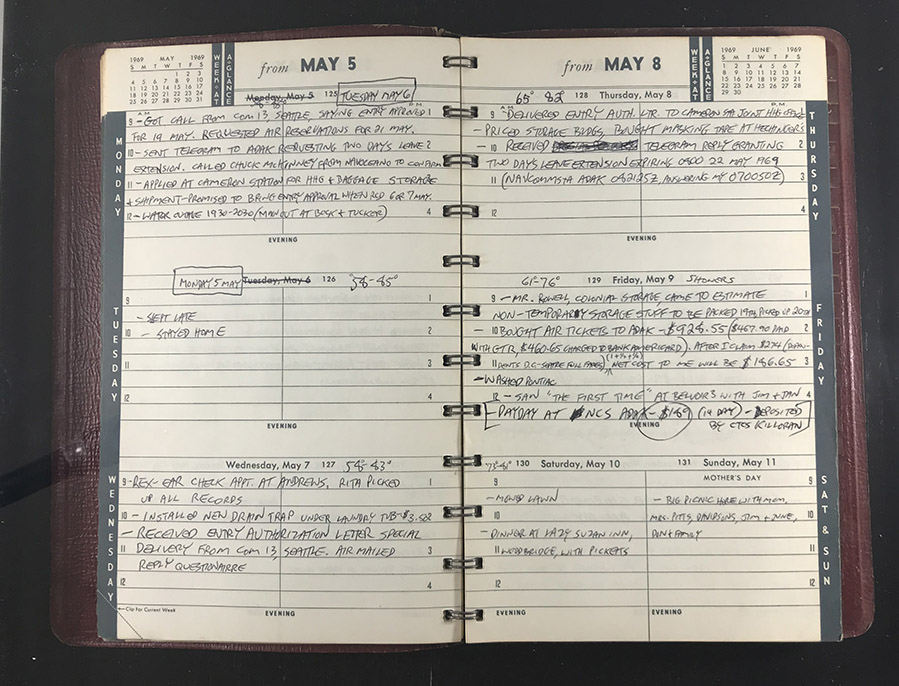 1969 MAY 1969
S M T W T F S
1 2 3
4 5 6 7 8 9 10
11 12 13 14 15 16 17
18 19 20 21 22 23 24
25 26 27 28 29 30 31
WEEK-AT
A-GLANCE
from MAY 5
Monday, May 5 125 TUESDAY MAY 6
MONDAY
A.M. P.M.
9 - GOT CALL FROM COM 13, SEATTLE, SAYING ENTRY APPROVED 1
FOR 19 MAY. REQUESTED AIR RESERVATIONS FOR 21 MAY.
10 - SENT TELEGRAM TO ADAK REQUESTING TWO DAYS LEAVE 2
EXTENSION. CALLED CHUCK MCKINNEY FROM NAVOCEANO TO CONFIRM
11 - APPLIED AT CAMERON STATION FOR HHG & BAGGAGE STORAGE
& SHIPMENT - PROMISED TO BRING ENTRY APPROVAL WHEN RCD 6 OR 7 MAY.
12 - WATER OUTAGE 1930-2030 (MAIN OUT AT BECK & TUCKER) 4
EVENING
MONDAY 5 MAY Tuesday, May 6 126 58°-85°
TUESDAY
9 1
- SLEPT LATE
10 - STAYED HOME 2
11 3
12 4
EVENING
Wednesday, May 7 127 58°-83°
WEDNESDAY
9 - REX - EAR CHECK APPT. AT ANDREWS, RITA PICKED 1
UP ALL RECORDS
10 - INSTALLED NEW DRAIN TRAP UNDER LAUNDRY TUB - $3.52 2
- RECEIVED ENTRY AUTHORIZATION LETTER SPECIAL
11 DELIVERY FROM COM 13, SEATTLE. AIR MAILED 3
REPLY QUESTIONAIRRE
12 4
←Clip For Current Week
EVENING
from MAY 8
WEEK-AT
A-GLANCE
1969 JUNE 1969
S M T W T F S
1 2 3 4 5 6 7
8 9 10 11 12 13 14
15 16 17 18 19 20 21
22 23 24 25 26 27 28
29 30
65° 82° 128 Thursday, May 8
THURSDAY
A.M. P.M.
9 - DELIVERED ENTRY AUTH. LTR. TO CAMERON STA JOINT HHG OFFICE 1
- PRICED STORAGE BLDGS, BOUGHT MASKING TAPE AT HECHINGERS
10 - RECEIVED TELEGRAM REPLY GRANTING 2
TWO DAYS LEAVE EXTENSION EXPIRING 0800 22 MAY 1969
11 (NAVCOMMSTA ADAK 082125Z, ANSWERING MY 070050Z) 3
12 4
EVENING
61°-76° 129 Friday, May 9 SHOWERS
FRIDAY
9 - MR. ROWELL, COLONIAL STORAGE CAME TO ESTIMATE 1
NON-TEMPORARY STORAGE STUFF TO BE PACKED 19TH, PICKED UP 20TH
10 BOUGHT AIR TICKETS TO ADAK - $928.55 ($467.90 PAID 2
WITH GTR, $460.65 CHARGED TO BANKAMERICARD). AFTER I CLAIM $274 (DEPEN-
11 DENTS D.C.-SEATTLE FULL FARES) NET COST TO ME WILL BE $186.65 3
- WASHED PONTIAC
12 - SAW "THE FIRST TIME" AT BELVOIR'S WITH JIM & JAN 4
PAYDAY AT NCS ADAK - $189 (14 DAY) - DEPOSITED
EVENING BY CTCS KILLORAN
73°-81° 130 Saturday, May 10
9
- MOWED LAWN
10
- DINNER AT LAZY SUZAN INN,
11 WOODBRIDGE, WITH PICKETTS
12
EVENING
131 Sunday, May 11
MOTHER'S DAY
SAT & SUN
9
- BIG PICNIC HERE WITH MOM,
MRS. PITTS, DAVIDSONS, JIM & JUNE, 10
DON & FAMILY
11
12
EVENING